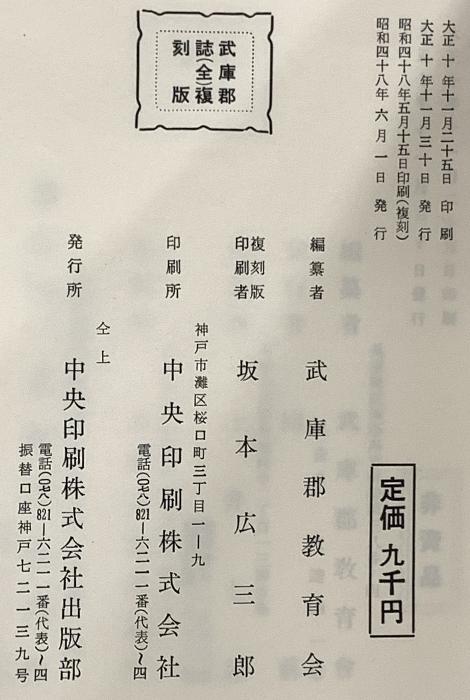 大正十年十一月二十五日 印刷
大正十年十一月三十日 発行
昭和四十八年五月十五日印刷(複刻)
昭和四十八年六月一日 発行
武庫郡
誌(全)複
刻版
定価 九千円
編纂者 武庫郡教育会
複刻版
印刷者 坂本広三郎
神戸市灘区桜口町三丁目一―九
印刷所 中央印刷株式会社
電話(〇七八)821―六二一一番(代表)~四
仝上
発行所 中央印刷株式会社出版部
電話(〇七八)821―六二一一番(代表)~四
振替口座神戸七二一三九号